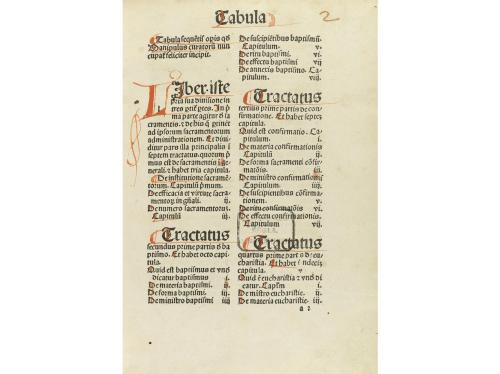 Tabula
2
Tabula sequẽtis opis qđ
Manipulus curatorũ nun
cupat̃ feliciter incipit.
Liber iste
iuxta sua diuisione in
tres ptit̃ ptes. In p̃
ma parte agitur ð sa
cramentis. ⁊ de hiis q̃ ptinẽt
ad ipsorum sacramentorum
administrationem. Et di
uiditur pars illa principalis ĩ
septem tractatus. quorum p̃
mus est de sacramentis ĩ ge
nerali. ⁊ habet tria capitula.
De institutione sacramẽ
torum. Capitulũ p̃mum.
De efficacia et virtute sacra
mentorum ĩ gñali. ij.
De numero sacramentorum.
Capitulũ iij.
Tractatus
secundus prime partis ð ba
ptismo. Et habet octo capi
tula.
Quid est baptismus et vnð
dicatur baptismus i
De materia baptismi. ij.
De forma baptismi. iij.
De ministro baptismi iiij.
De suscipiẽtibus baptismũ.
Capitulum. v.
De ritu baptismi. vi.
De effectu baptismi vij
De annexis baptismo. Ca
pitulum. viij.
Tractatus
tertius prime partis de confir
matione. Et habet septem
capitula.
Quid est confirmatio. Ca
pitulum. i.
De materia confirmationis
Capitulum ij.
De forma sacramenti cõfir
matiõis. iij.
De ministro confirmationis
Capitulum iiij.
De suscipientibus confirma
tionem. v.
De ritu confirmatiõis vi.
De effectu confirmationis.
Capitulum vij.
Tractatus
quartus prime partis ð eu
charistia. Et habet vndecim
capitula.
Quid ẽ eucharistia ⁊ vnð di
catur. Caplm̃ i.
De mĩstro eucharistie. ij.
De materia eucharistie. iij.
a i